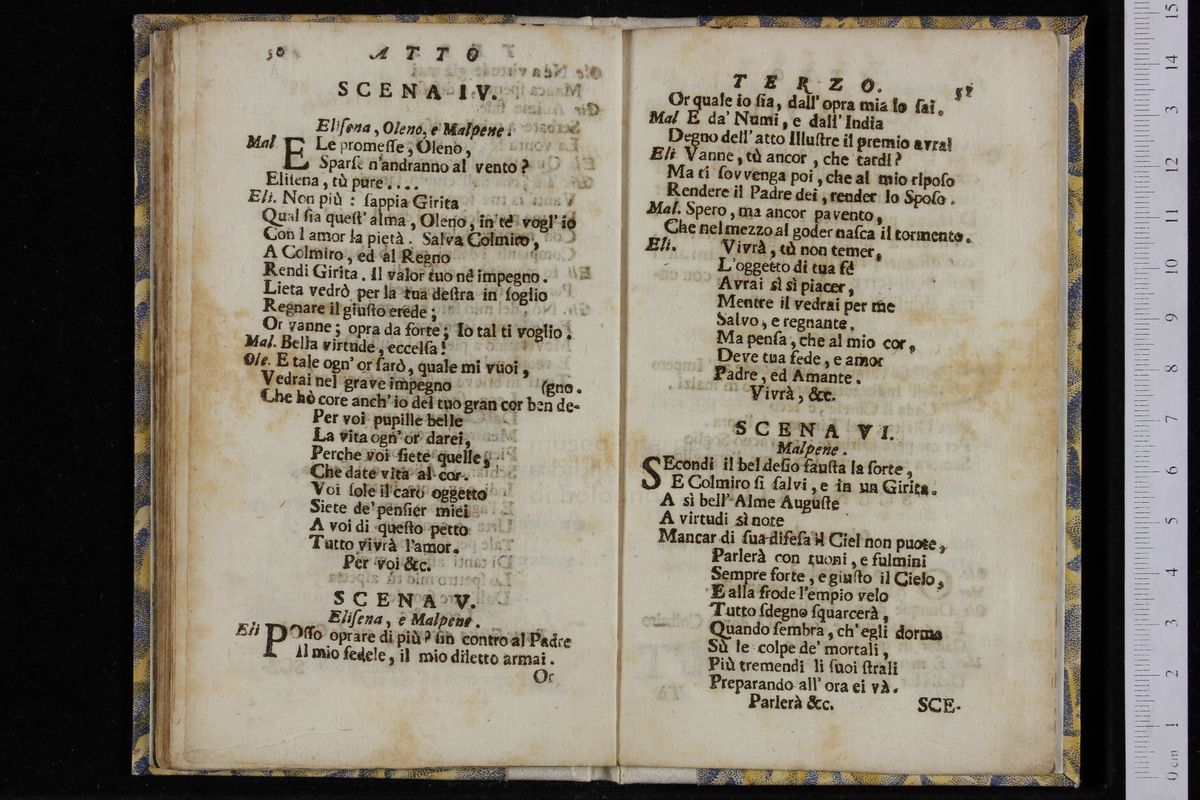 50 ATTO
SCENA IV.
Elisena, Oleno, e Malpene.
Mal E Le promesse, Oleno,
Sparse n'andranno al vento?
Elisena, tù pure....
Eli. Non più: sappia Girita
Qual sia quest' alma, Oleno, in te vogl' io
Con l amor la pietà. Salva Colmiro,
A Colmiro, ed al Regno
Rendi Girita. Il valor tuo né impegno.
Lieta vedrò per la tua destra in soglio
Regnare il giusto erede;
Or vanne; opra da forte; Io tal ti voglio.
Mal. Bella virtude, eccelsa!
Ole. E tale ogn' or sarò, quale mi vuoi,
Vedrai nel grave impegno (gno.
Che hò core anch' io del tuo gran cor ben de-
Per voi pupille belle
La vita ogn' or darei,
Perche voi siete quelle,
Che date vita al cor.
Voi sole il caro oggetto
Siete de' pensier miei
A voi di questo petto
Tutto vivrà l'amor.
Per voi &c.
SCENA V.
Elisena, e Malpene.
Eli POsso oprare di più? sin contro al Padre
Il mio fedele, il mio diletto armai.
Or
TERZO. 51
Or quale io sia, dall' opra mia lo sai.
Mal E da' Numi, e dall' India
Degno dell' atto Illustre il premio avrai
Eli Vanne, tù ancor, che tardi?
Ma ti sovvenga poi, che al mio riposo
Rendere il Padre dei, render lo Sposo.
Mal. Spero, ma ancor pavento,
Che nel mezzo al goder nasca il tormento.
Eli. Vivrà, tù non temer,
L'oggetto di tua fé
Avrai sì sì piacer,
Mentre il vedrai per me
Salvo, e regnante.
Ma pensa, che al mio cor,
Deve tua fede, e amor
Padre, ed Amante.
Vivrà, &c.
SCENA VI.
Malpene.
SEcondi il bel desio fausta la sorte,
E Colmiro si salvi, e in un Girita.
A sì bell' Alme Auguste
A virtudi sì note
Mancar di sua difesa il Ciel non puote,
Parlerà con tuoni, e fulmini
Sempre forte, e giusto il Cielo,
E alla frode l'empio velo
Tutto sdegno squarcerà,
Quando sembra, ch' egli dorma
Sù le colpe de' mortali,
Più tremendi li suoi strali
Preparando all' ora ei và.
Parlerà &c.
SCE-